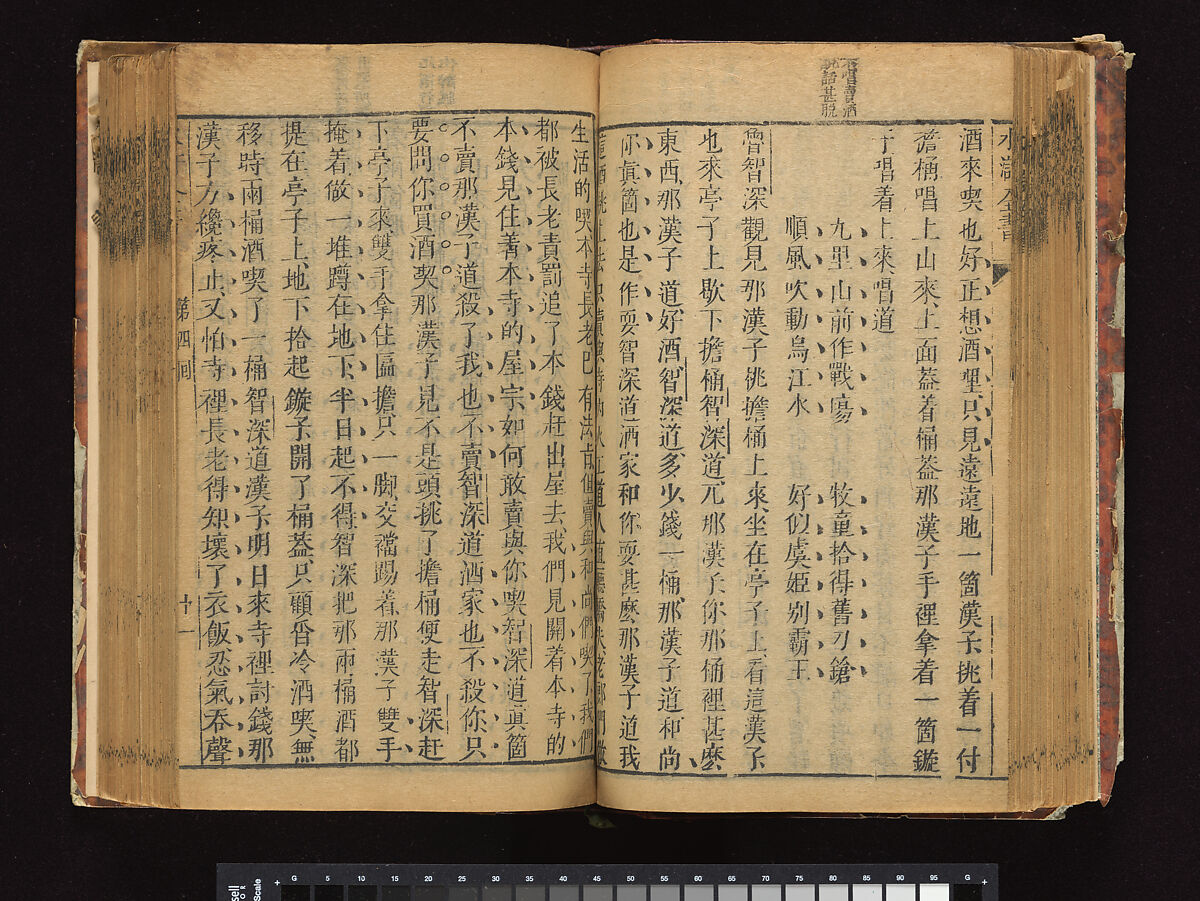 水滸全書
不唱賣酒
說話甚脫
酒來喫也好正想酒哩只見遠遠地一箇漢子挑着一付
擔桶唱上山來上面蓋着桶蓋那漢子手裡拿着一箇鏇
子唱着上來唱道
九里山前作戰塲 牧童拾得舊刀鎗
順風吹動烏江水 好似虞姬别霸王
魯智深觀見那漢子挑擔桶上來坐在亭子上看這漢子
也來亭子上歇下擔桶智深道兀那漢子你那桶裡甚麽
東西那漢子道好酒智深道多少錢一桶那漢子道和尚
你真箇也是作耍智深道洒家和你耍甚麽那漢子道我
這酒挑上去只賣與寺内火工道人直廳轎夫老郎們做
生活的喫本寺長老已有法旨但賣與和尚們喫了我們
都被長老責罰追了本錢赶出屋去我們見關着本寺的
本錢見住着本寺的屋宇如何敢賣與你喫智深道真箇
不賣那漢子道殺了我也不賣智深道洒家也不殺你只
要問你買酒喫那漢子見不是頭挑了擔桶便走智深赶
下亭子來雙手拿住匾擔只一脚交襠踢着那漢子雙手
掩着做一堆蹲在地下半日起不得智深把那兩桶酒都
提在亭子上地下拾起鏇子開了桶蓋只顧舀冷酒喫無
移時兩桶酒喫了一桶智深道漢子明日來寺裡討錢那
漢子方纔疼止又怕寺裡長老得知壞了衣飯忍氣吞聲
第四囘
十一
G 5 10 20 30 40 50 60 65 70 75 80 85 90 95 G